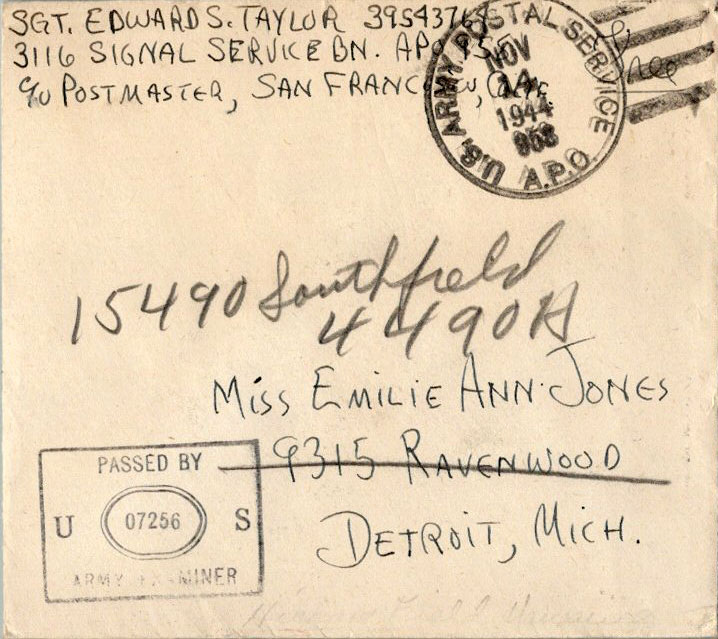 SGT. EDWARD S. TAYLOR
3116 SIGNAL SERVICE BN. APO
c/o POSTMASTER, SAN FRANCISCO, CALIF.
Free
U.S. ARMY POSTAL SERVICE
NOV
1944
A.P.O.
15490 Southfield
4490A
MISS EMILIE ANN JONES
9315 RAVENWOOD
DETROIT, MICH.
PASSED BY
U 07256 S
ARMY EXAMINER